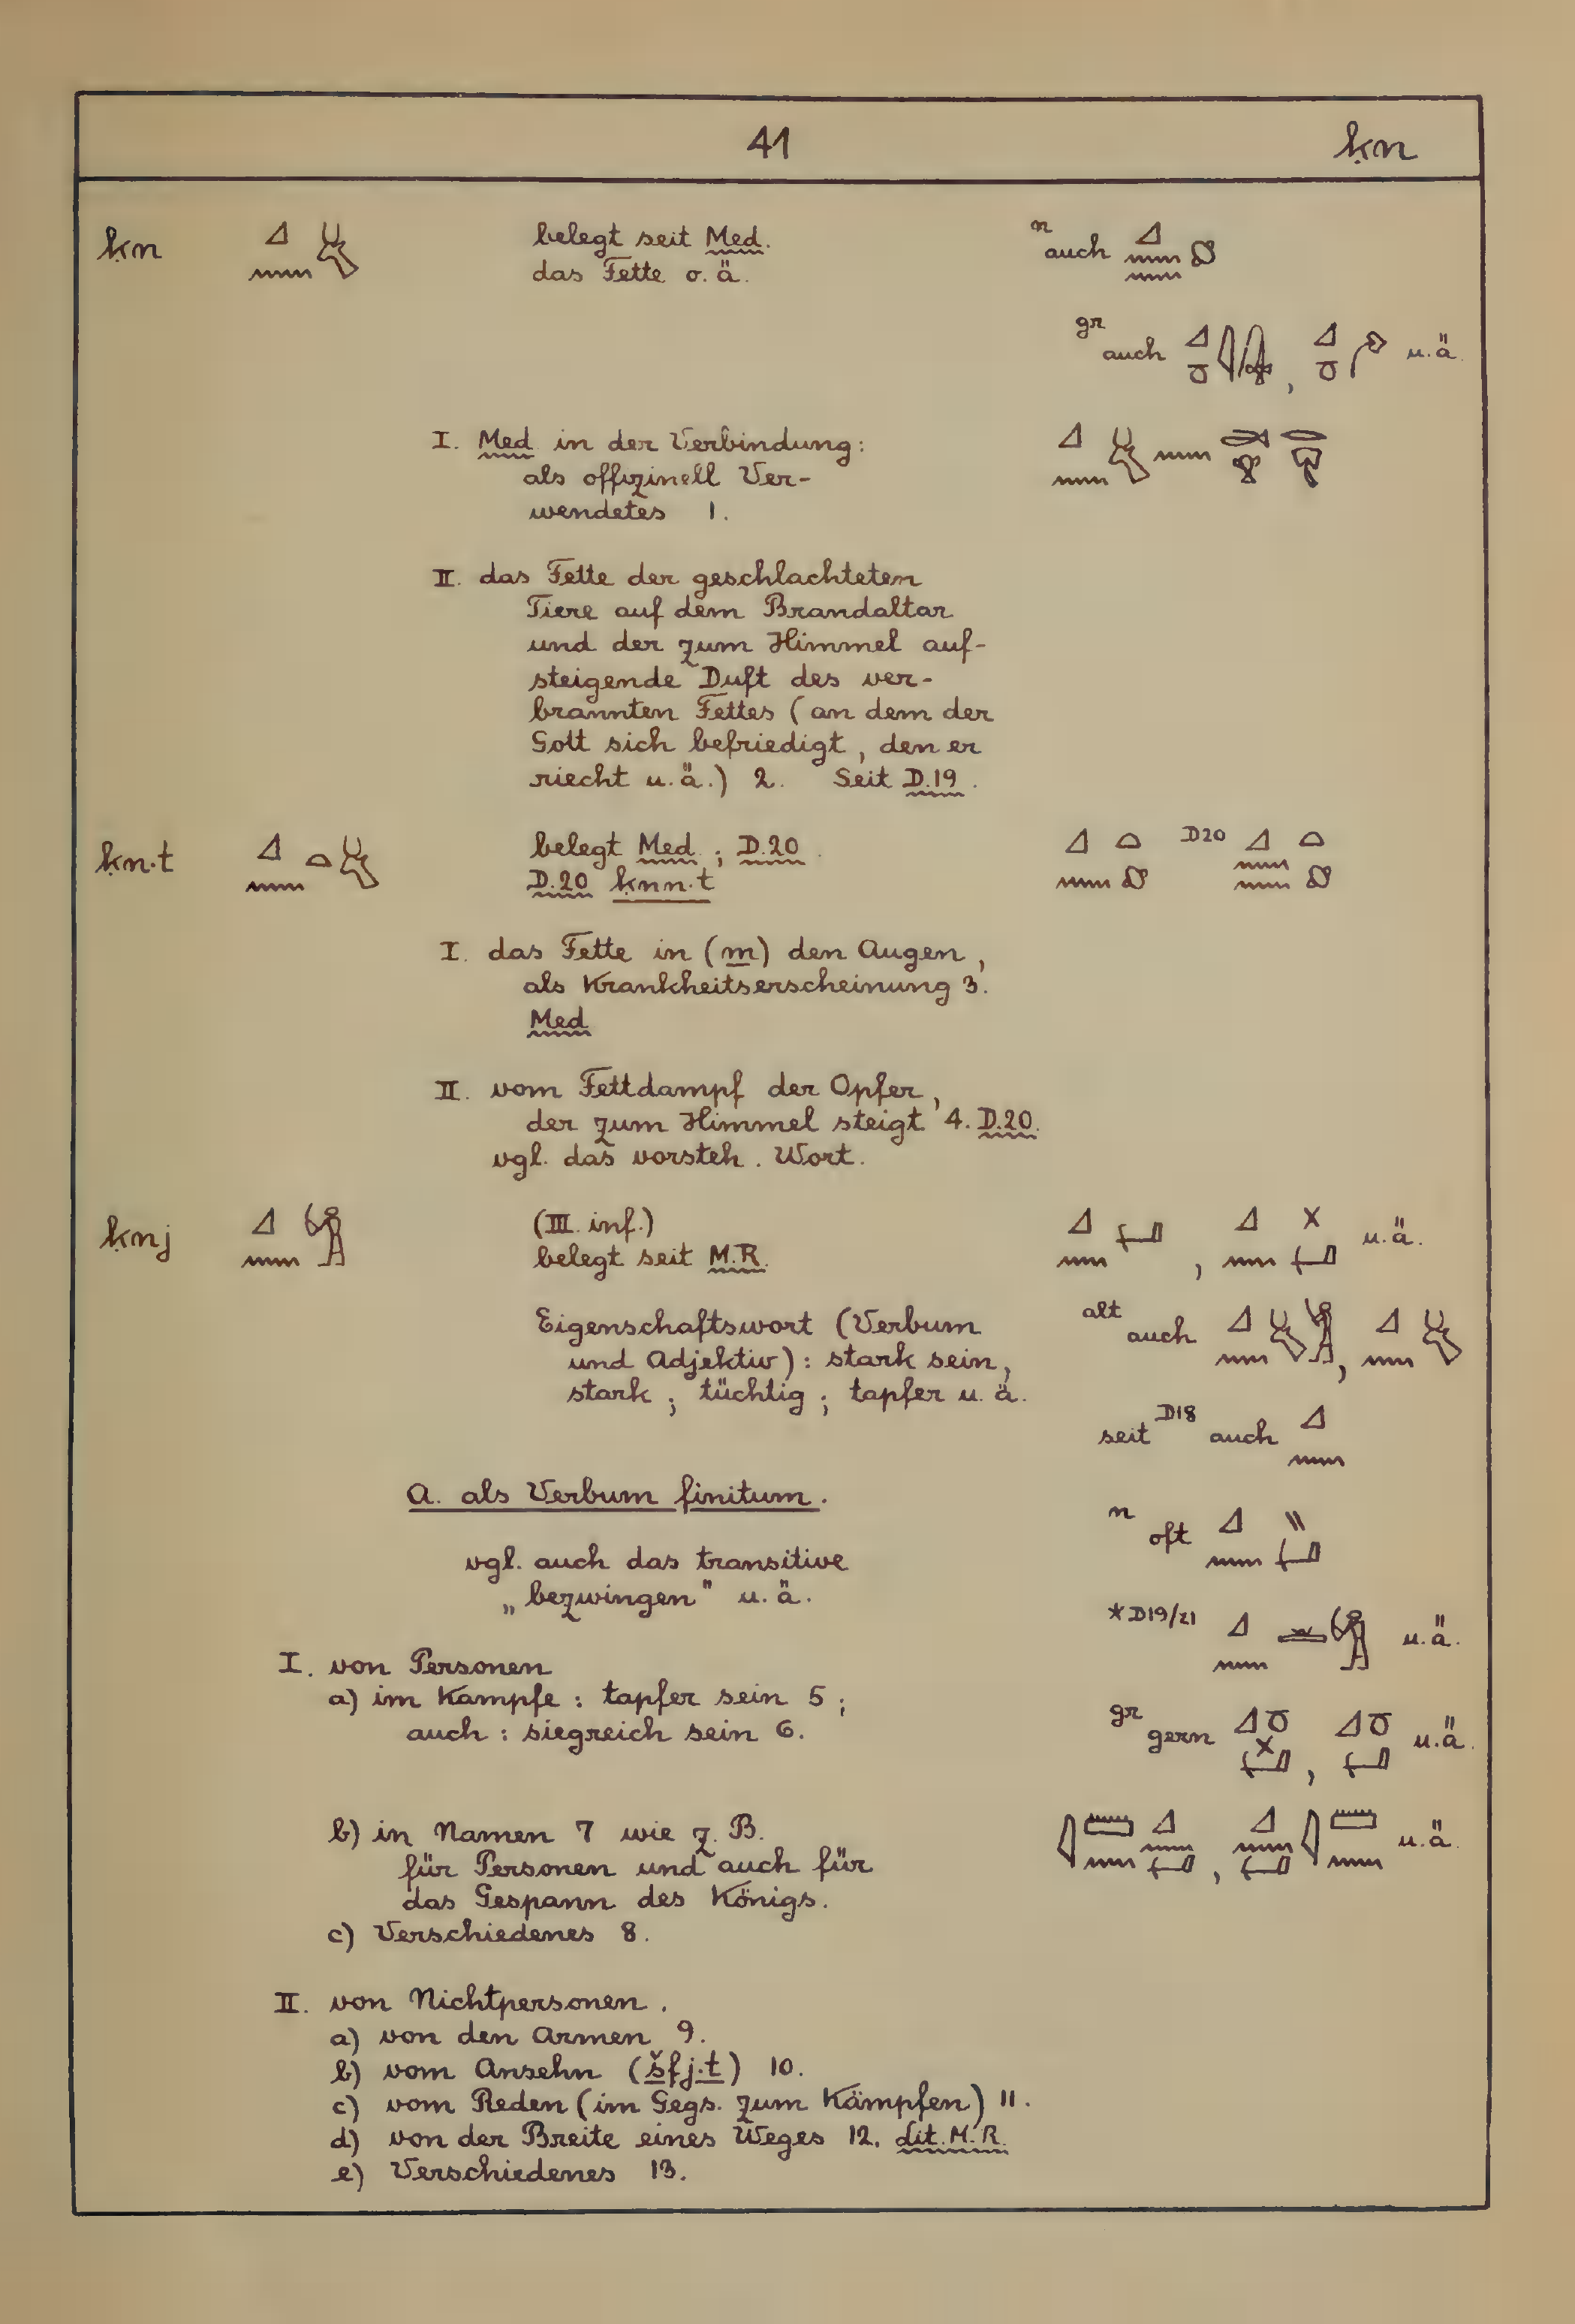 41 ḳn
ḳn belegt seit Med. n auch
das Fette o. ä.
gr auch , u. ä.
I. Med in der Verbindung:
als offizinell Ver-
wendetes 1.
II. das Fette der geschlachteten
Tiere auf dem Brandaltar
und der zum Himmel auf-
steigende Duft des ver-
brannten Fettes (an dem der
Gott sich befriedigt, den er
riecht u. ä.) 2. Seit D.19.
ḳn·t belegt Med.; D.20. D20
D.20 ḳnn·t
I. das Fette in (m) den Augen,
als Krankheitserscheinung 3.
Med
II. vom Fettdampf der Opfer,
der zum Himmel steigt 4. D.20.
vgl. das vorsteh. Wort.
ḳnj (III. inf.) , u. ä.
belegt seit M.R.
Eigenschaftswort (Verbum alt auch ,
und Adjektiv): stark sein,
stark; tüchtig; tapfer u. ä.
seit D18 auch
A. als Verbum finitum.
n oft
vgl. auch das transitive
„bezwingen" u. ä.
*D19/21 u. ä.
I. von Personen
a) im Kampfe: tapfer sein 5;
auch: siegreich sein 6.
gr gern , u. ä.
b) in Namen 7 wie z. B. , u. ä.
für Personen und auch für
das Gespann des Königs.
c) Verschiedenes 8.
II. von Nichtpersonen.
a) von den Armen 9.
b) vom Ansehn (šfj·t) 10.
c) vom Reden (im Gegs. zum Kämpfen) 11.
d) von der Breite eines Weges 12. Lit. M.R.
e) Verschiedenes 13.